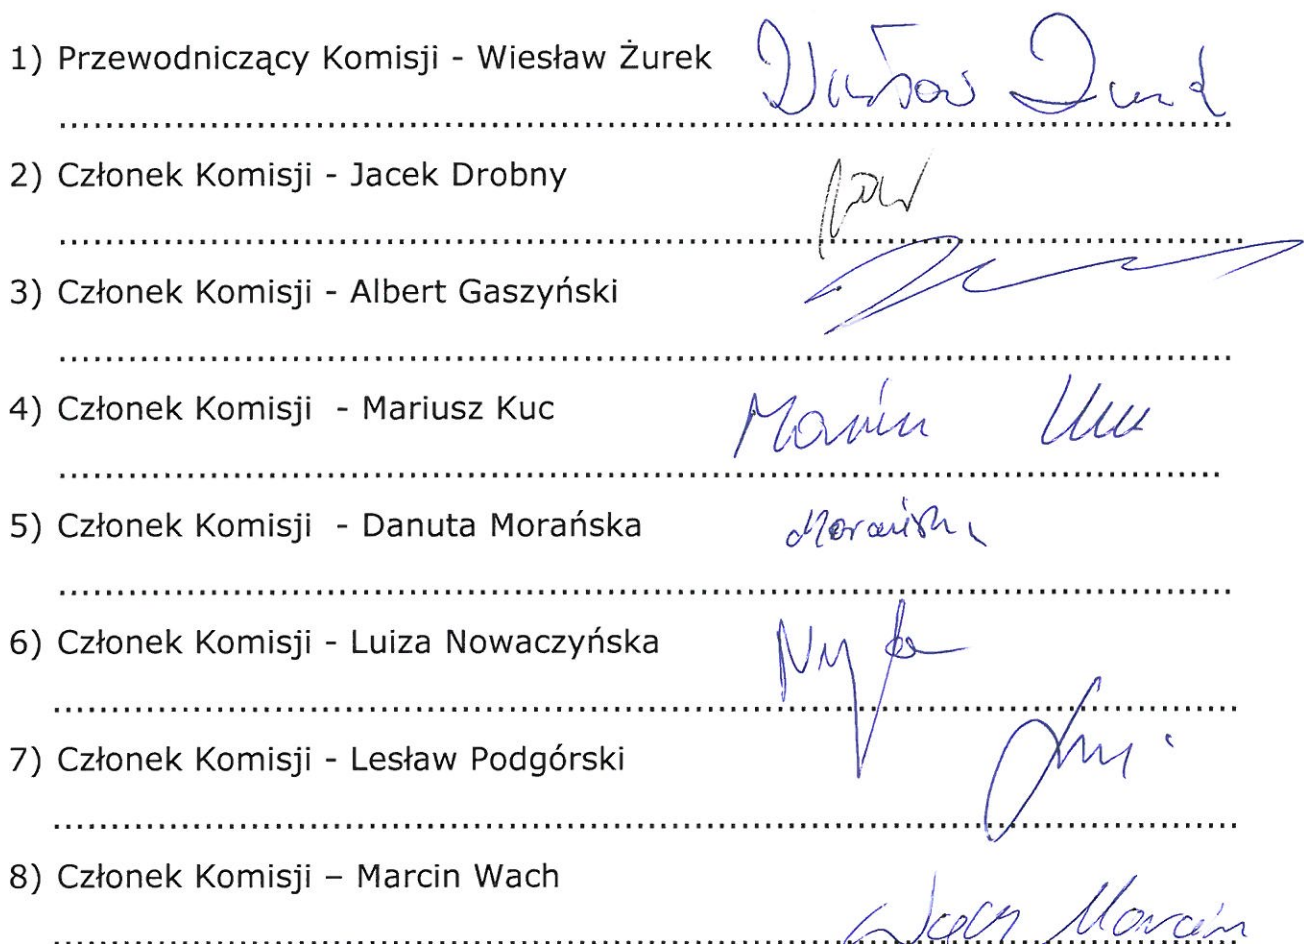 1) Przewodniczący Komisji - Wiesław Żurek
2) Członek Komisji - Jacek Drobny
3) Członek Komisji - Albert Gaszyński
4) Członek Komisji - Mariusz Kuc
5) Członek Komisji - Danuta Morańska
Morańska
6) Członek Komisji - Luiza Nowaczyńska
7) Członek Komisji - Lesław Podgórski
8) Członek Komisji – Marcin Wach
Wach Marcin